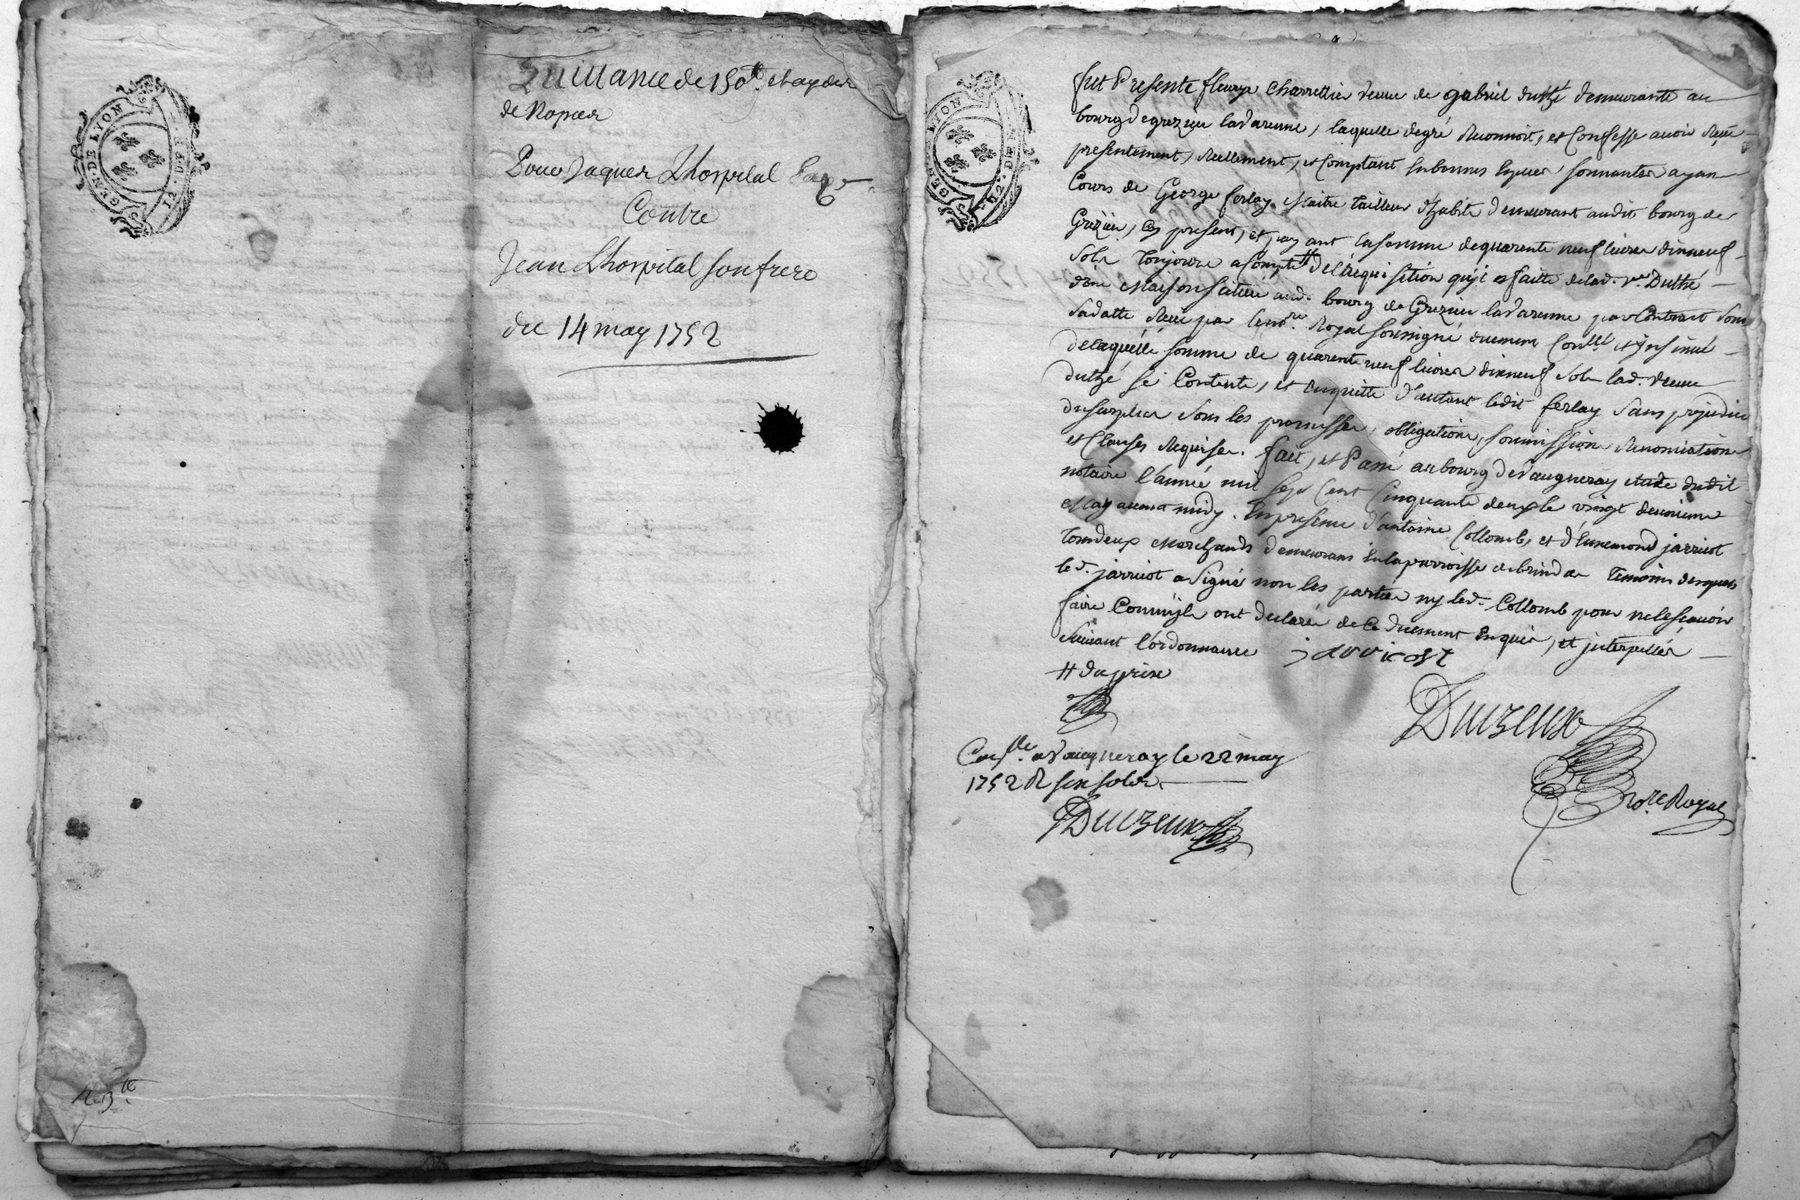 GEN. DE LYON
Quittance de 150tt et aydes
de Nopces
Pour Jaques Lhospital
Contre
Jean Lhospital son frere
du 14 may 1752
GEN. DE LYON
fut Presente fleurye Charretier veuve de gabriel duthé demeurante au
bourg de grezieu lavarenne, laquelle de gré Reconnoit, et Confesse avoir Reçu
presentement, Reellement, et Comptant en bonnes especes sonnantes ayan
Cours de George ferlay Maitre tailleur d'habits demeurant audit bourg de
Grezieu, icy present, et payant la somme de quarente neuf livres dixneuf
sols toujours a Compte # de l'acquisition qu'il a faitte de lad. ve. Duthé
d'une Maison scituée aud. bourg de Grezieu lavarenne par Contract sous
sa datte Reçu par le nore. Royal soussigné duement Conllé. et insinué
de laquelle somme de quarente neuf livres dixneuf sols lad. veuve
duthé se Contente, et en quitte d'autant ledit ferlay sans prejudice
du surplus sous les promesses, obligations, soumissions Renonciations
et Clauses Requises. fait, et Passé au bourg de Vaugneray etude dudit
notaire l'année mil sept Cent Cinquante deux le vingt deuxieme
May avant midy. En presence d'antoine Collomb, et d'Ennemond jarricot
tous deux Marchands demeurans en la parroisse de brindas temoins Requis
led. jarricot a signé non les parties ny led. Collomb pour ne le scavoir
faire Comm'ils ont declaré de Ce duement Enquis, et interpellés
suivant l'ordonnance jarricost
# du prix
Conllé. a Vaugneray le 22 may
1752 R six sols
Duizeux
Duizeux
nore Royal